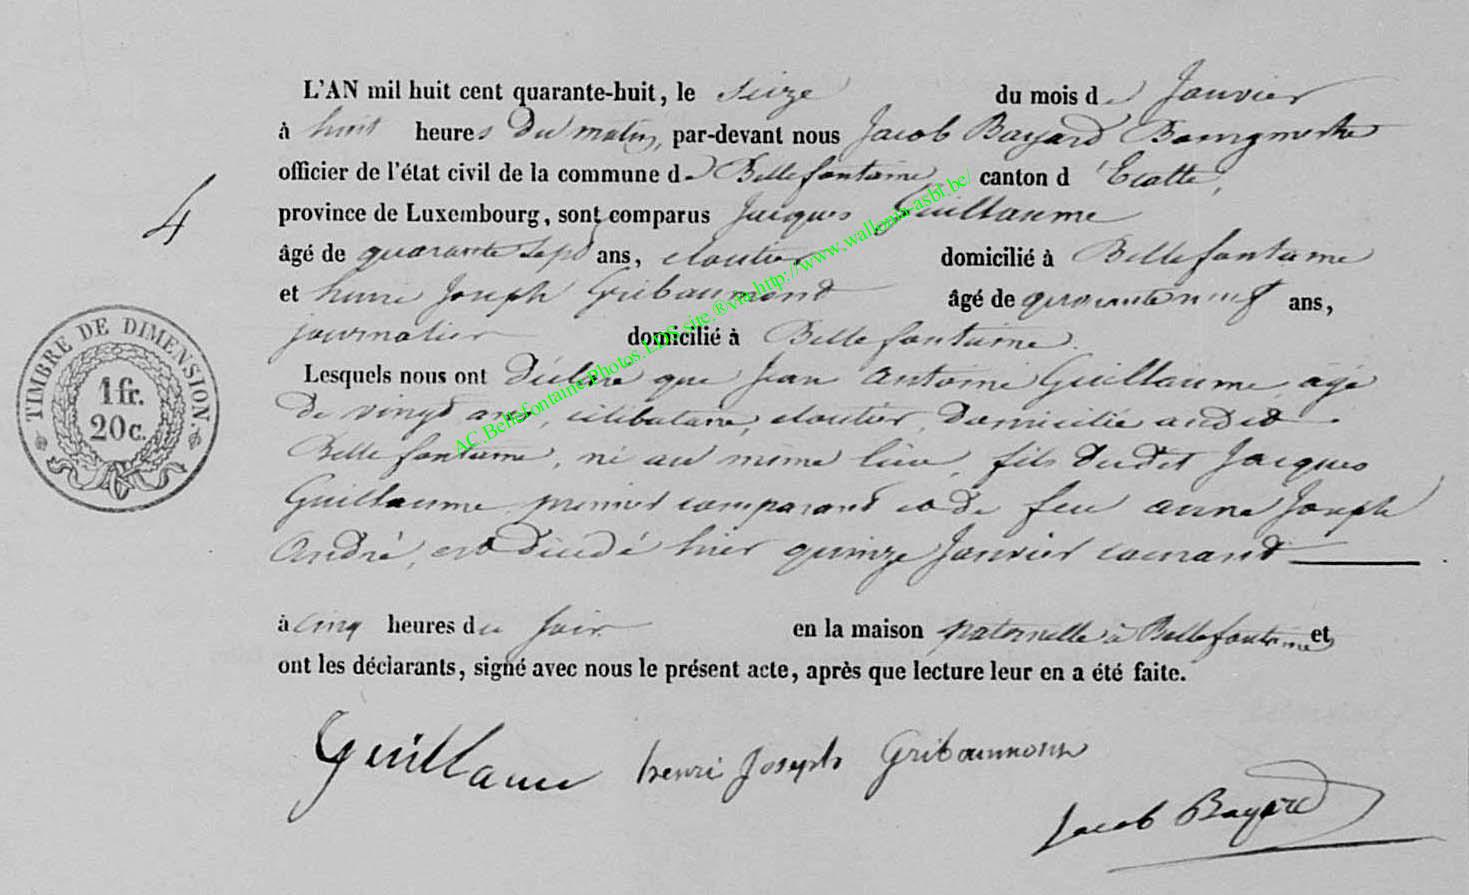 L'AN mil huit cent quarante-huit, le seize du mois de Janvier
à huit heures du matin, par-devant nous Jacob Bayard Bourgmestre
officier de l'état civil de la commune de Bellefontaine, canton d'Etalle,
province de Luxembourg, sont comparus Jacques Guillaume
âgé de quarante sept ans, cloutier domicilié à Bellefontaine
et henri Joseph Gribaumont âgé de quarante neuf ans,
journalier domicilié à Bellefontaine.
Lesquels nous ont déclaré que Jean Antoine Guillaume, agé
de vingt ans, célibataire, cloutier domicilié audit
Bellefontaine, né au même lieu, fils dudit Jacques
Guillaume premier comparant et de feu anne Joseph
André, est décédé hier quinze Janvier courant
à cinq heures du soir en la maison paternelle à Bellefontaine et
ont les déclarants, signé avec nous le présent acte, après que lecture leur en a été faite.
Guillaume henri Joseph Gribaumont
Jacob Bayard
4
TIMBRE DE DIMENSION.
1 fr.
20 c.
AC.Bellefontaine.Photos.LDS.site.®via.http://www.wallonia-asbl.be/